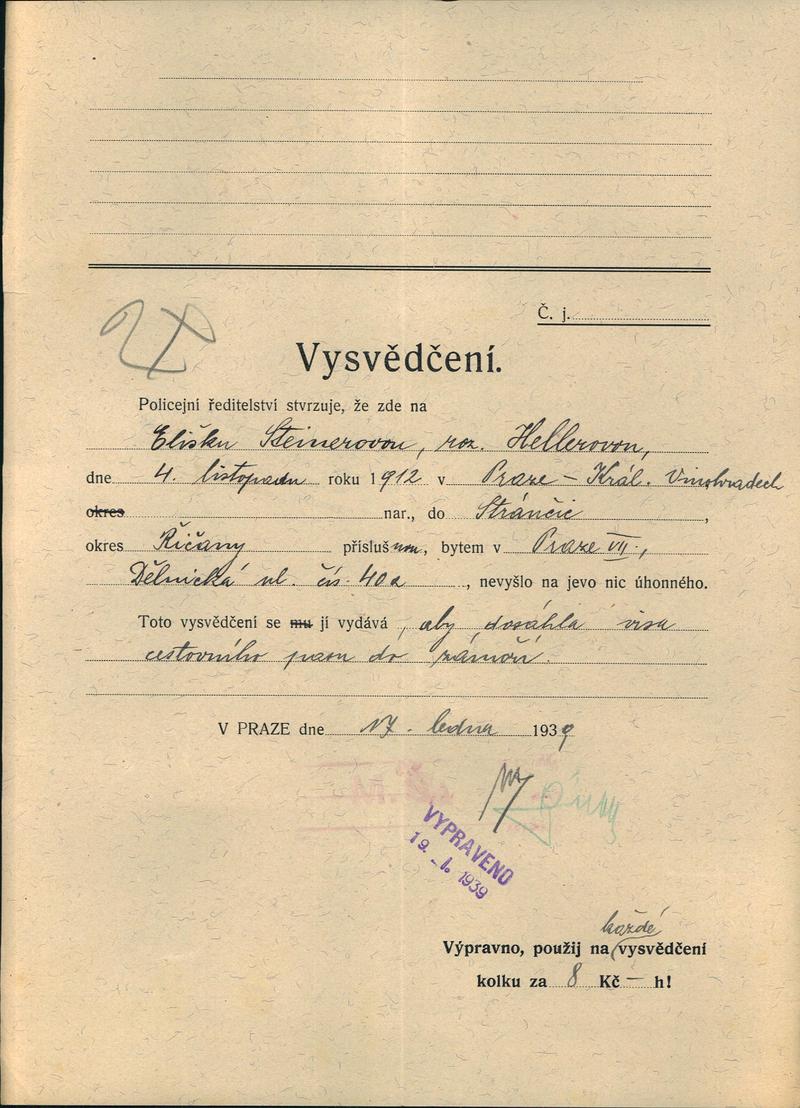 Č. j.
2x
Vysvědčení.
Policejní ředitelství stvrzuje, že zde na
Elišku Steinerovou, roz. Hellerovou,
dne 4. listopadu roku 1912 v Praze – Král. Vinohradech
okres nar., do Stránčic ,
okres Říčany příslušnou, bytem v Praze VII.,
Dělnická ul. čís. 40a , nevyšlo na jevo nic úhonného.
Toto vysvědčení se mu jí vydává, aby dosáhla visa
cestovního pasu do zámoří.
V PRAZE dne 17. ledna 1939
VYPRAVENO
19. -I. 1939
každé
Výpravno, použij na vysvědčení
kolku za 8 Kč — h!